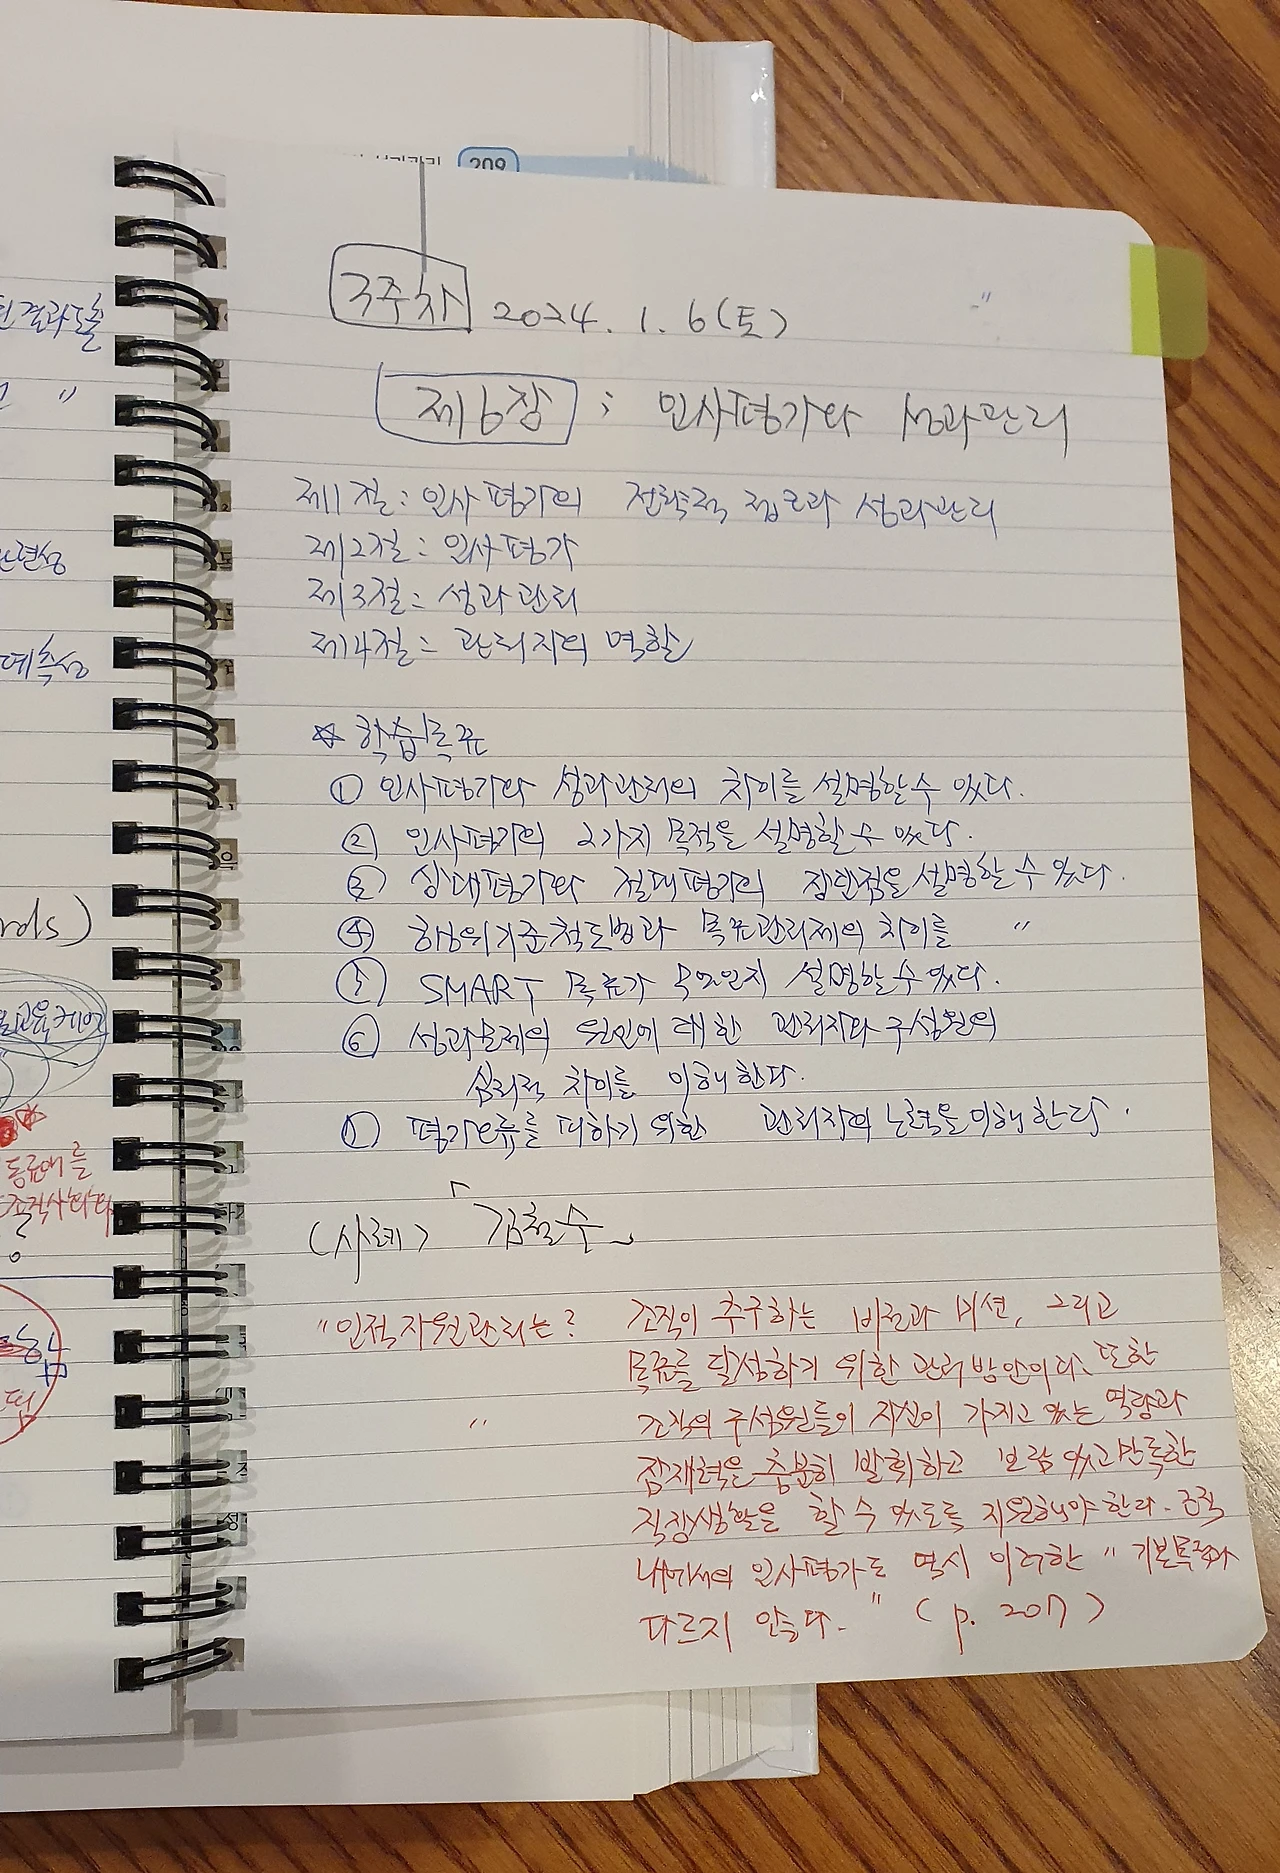 209
3주차 2024. 1. 6(토) "
제6장 ; 인사평가와 성과관리
제1절 : 인사평가의 전략적 접근과 성과관리
제2절 : 인사평가
제3절 : 성과관리
제4절 : 관리자의 역할
☆ 학습목표
① 인사평가와 성과관리의 차이를 설명할 수 있다.
② 인사평가의 2가지 목적을 설명할 수 있다.
③ 상대평가와 절대평가의 장단점을 설명할 수 있다.
④ 행위기준척도법과 목표관리제의 차이를 "
⑤ SMART 목표가 무엇인지 설명할 수 있다.
⑥ 성과문제의 원인에 대한 관리자와 구성원의
심리적 차이를 이해한다.
⑦ 평가오류를 피하기 위한 관리자의 노력을 이해한다.
(사례) 「김철수」
"인적자원관리는? 조직이 추구하는 비전과 미션, 그리고
목표를 달성하기 위한 관리방안이다. 또한
" 조직의 구성원들이 자신이 가지고 있는 역량과
잠재력을 충분히 발휘하고 보람 있고 만족한
직장생활을 할 수 있도록 지원해야 한다. 조직
내에서의 인사평가도 역시 이러한 " 기본목적과
다르지 않다. " (p. 207)
관련성
예측성
rds)
동료애를
조직사회화